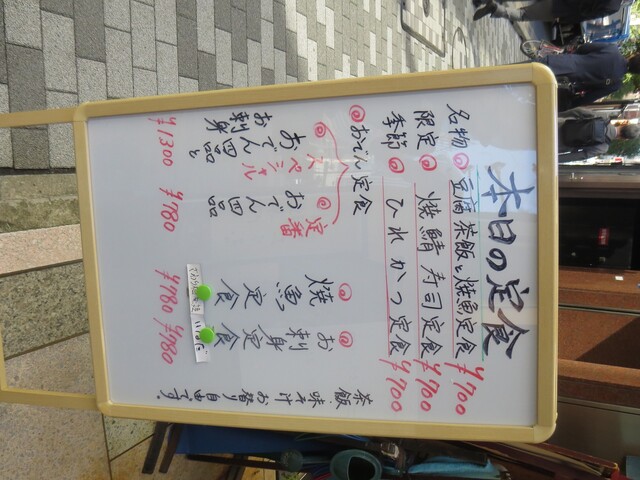 本日の定食
名物 豆腐茶飯と焼魚定食 ¥700
限定 焼鯖寿司定食 ¥700
季節 ひれかつ定食 ¥700
おでん定食
スペシャル
おでん四品と
お刺身
¥1300
定番
おでん四品
¥780
焼魚定食
¥780
お刺身定食
¥980
茶飯
味そ汁
お替り自由です。